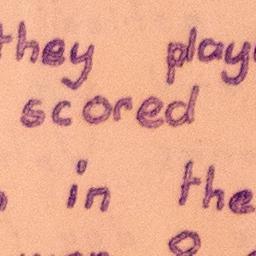 they play
scored
in the